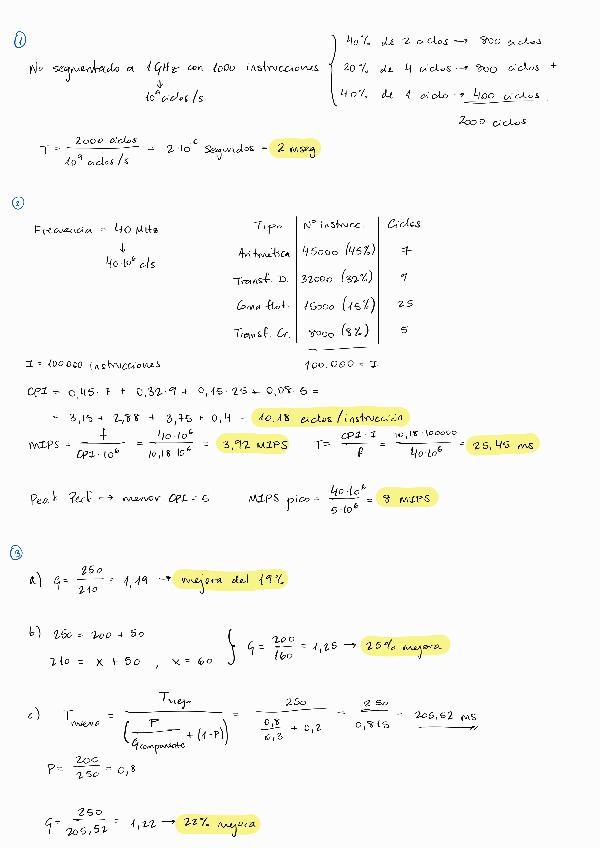 1
No segmentado a 1GHz con 1000 instrucciones { 40% de 2 ciclos → 800 ciclos
↓ 20% de 4 ciclos → 800 ciclos +
10⁹ ciclos/s 40% de 1 ciclo → 400 ciclos
2000 ciclos
T = 2000 ciclos / 10⁹ ciclos/s = 2·10⁶ segundos = 2 mseg
2
Frecuencia = 40 MHz
↓
40·10⁶ c/s
Tipo Nº instruc. Ciclos
Aritmética 45000 (45%) 7
Transf. D. 32000 (32%) 9
Coma flot. 15000 (15%) 25
Transf. Cr. 8000 (8%) 5
I = 100000 instrucciones 100.000 = I
CPI = 0,45·7 + 0,32·9 + 0,15·25 + 0,08·5 =
= 3,15 + 2,88 + 3,75 + 0,4 = 10,18 ciclos/instrucción
MIPS = f / CPI·10⁶ = 40·10⁶ / 10,18·10⁶ = 3,92 MIPS T = CPI·I / f = 10,18·100000 / 40·10⁶ = 25,45 ms
Peak Perf → menor CPI = 5 MIPS pico = 40·10⁶ / 5·10⁶ = 8 MIPS
3
a) G = 250 / 210 = 1,19 → mejora del 19%
b) 250 = 200 + 50
210 = x + 50 , x = 160 } G = 200 / 160 = 1,25 → 25% mejora
c) Tnuevo = Tviejo / (P / Gcomponente + (1-P)) = 250 / (0,8 / 1,3 + 0,2) = 250 / 0,815 = 205,52 ms
P = 200 / 250 = 0,8
G = 250 / 205,52 = 1,22 → 22% mejora